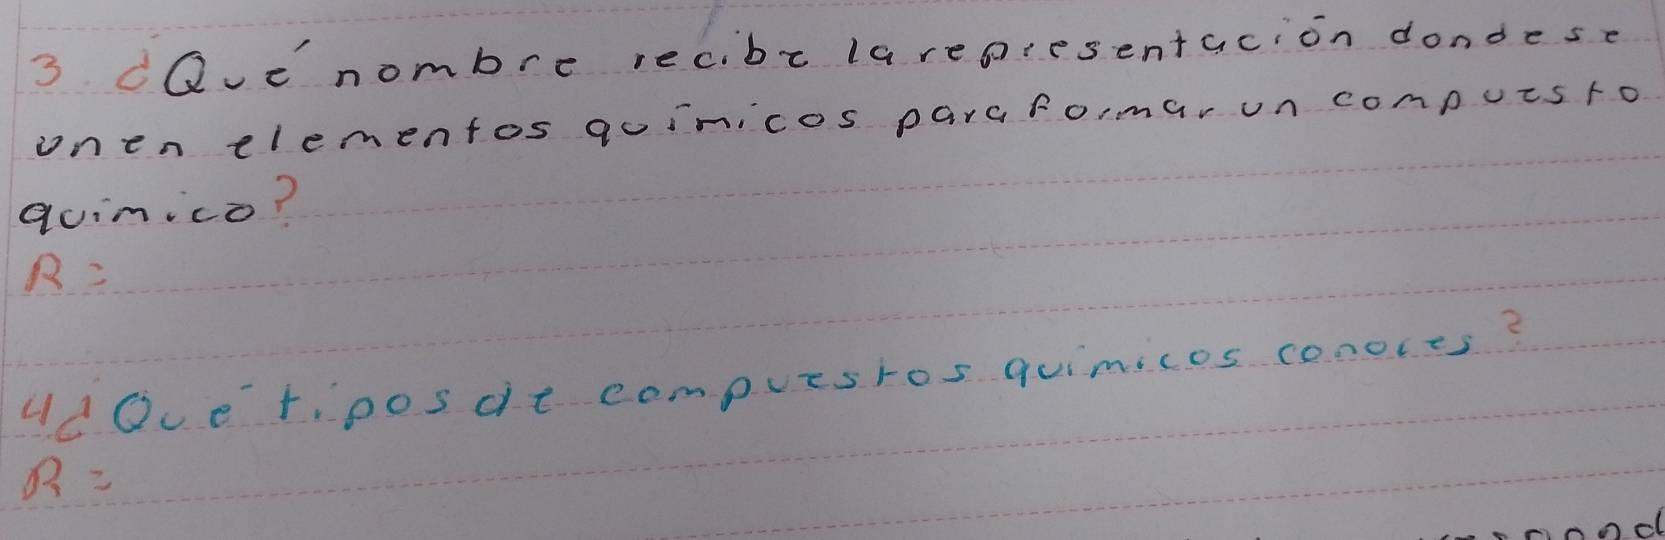 3. ¿Qué nombre recibe la representación donde se
unen elementos químicos para formar un compuesto
quimico?
R=
4¿Qué tipos de compuestos químicos conoces?
R=